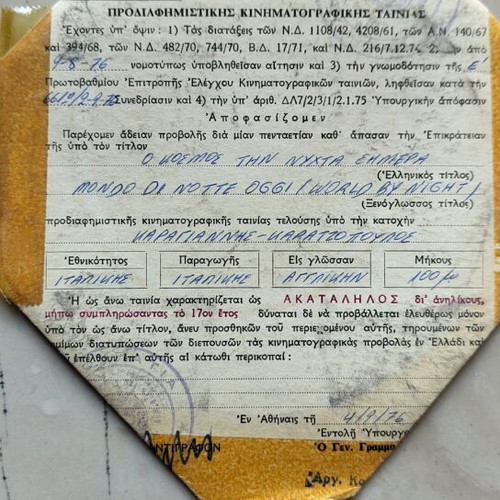 ΠΡΟΔΙΑΦΗΜΙΣΤΙΚΗΣ ΚΙΝΗΜΑΤΟΓΡΑΦΙΚΗΣ ΤΑΙΝΙΑΣ
Ἔχοντες ὑπ' ὄψιν: 1) Τὰς διατάξεις τῶν Ν.Δ. 1108/42, 4208/61, τῶν Α.Ν. 140/67
καὶ 394/68, τῶν Ν.Δ. 482/70, 744/70, Β.Δ. 17/71, καὶ Ν.Δ. 216/7.12.74 2, ἀπὸ
9-8-76 νομοτύπως ὑποβληθεῖσαν αἴτησιν καὶ 3) τὴν γνωμοδότησιν τῆς Ε'
Πρωτοβαθμίου Ἐπιτροπῆς Ἐλέγχου Κινηματογραφικῶν ταινιῶν, ληφθεῖσαν κατὰ τὴν
Συνεδρίασιν καὶ 4) τὴν ὑπ' ἀριθ. ΔΛ7/2/3/1/2.1.75 Ὑπουργικὴν ἀπόφασιν
Ἀποφασίζομεν
Παρέχομεν ἄδειαν προβολῆς διὰ μίαν πενταετίαν καθ' ἅπασαν τὴν Ἐπικράτειαν
τῆς ὑπὸ τὸν τίτλον
Ο ΚΟΣΜΟΣ ΤΗΝ ΝΥΧΤΑ ΣΗΜΕΡΑ
(Ἑλληνικὸς τίτλος)
MONDO DI NOTTE OGGI (WORLD BY NIGHT)
(Ξενόγλωσσος τίτλος)
προδιαφημιστικῆς κινηματογραφικῆς ταινίας τελούσης ὑπὸ τὴν κατοχὴν
ΚΑΡΑΓΙΑΝΝΗΣ-ΚΑΡΑΤΖΟΠΟΥΛΟΣ
Ἐθνικότητος Παραγωγῆς Εἰς γλῶσσαν Μήκους
ΙΤΑΛΙΚΗΣ ΙΤΑΛΙΚΗΣ ΑΓΓΛΙΚΗΝ 100 μ
Ἡ ὡς ἄνω ταινία χαρακτηρίζεται ὡς ΑΚΑΤΑΛΗΛΟΣ δι' ἀνηλίκους,
μήπω συμπληρώσαντας τὸ 17ον ἔτος δύναται δὲ νὰ προβάλλεται ἐλευθέρως μόνον
ὑπὸ τὸν ὡς ἄνω τίτλον, ἄνευ προσθηκῶν τοῦ περιεχομένου αὐτῆς, τηρουμένων τῶν
νομίμων διατυπώσεων τῶν διεπουσῶν τὰς κινηματογραφικὰς προβολὰς ἐν Ἑλλάδι καὶ
ἐπέλθουν ἐπ' αὐτῆς αἱ κάτωθι περικοπαί:
Ἐν Ἀθήναις τῇ 4/9/76
Ἐντολῇ Ὑπουργο
ΑΝΤΙΓΡΑΦΟΝ Ὁ Γεν. Γραμμα
Ἀργ. Κο